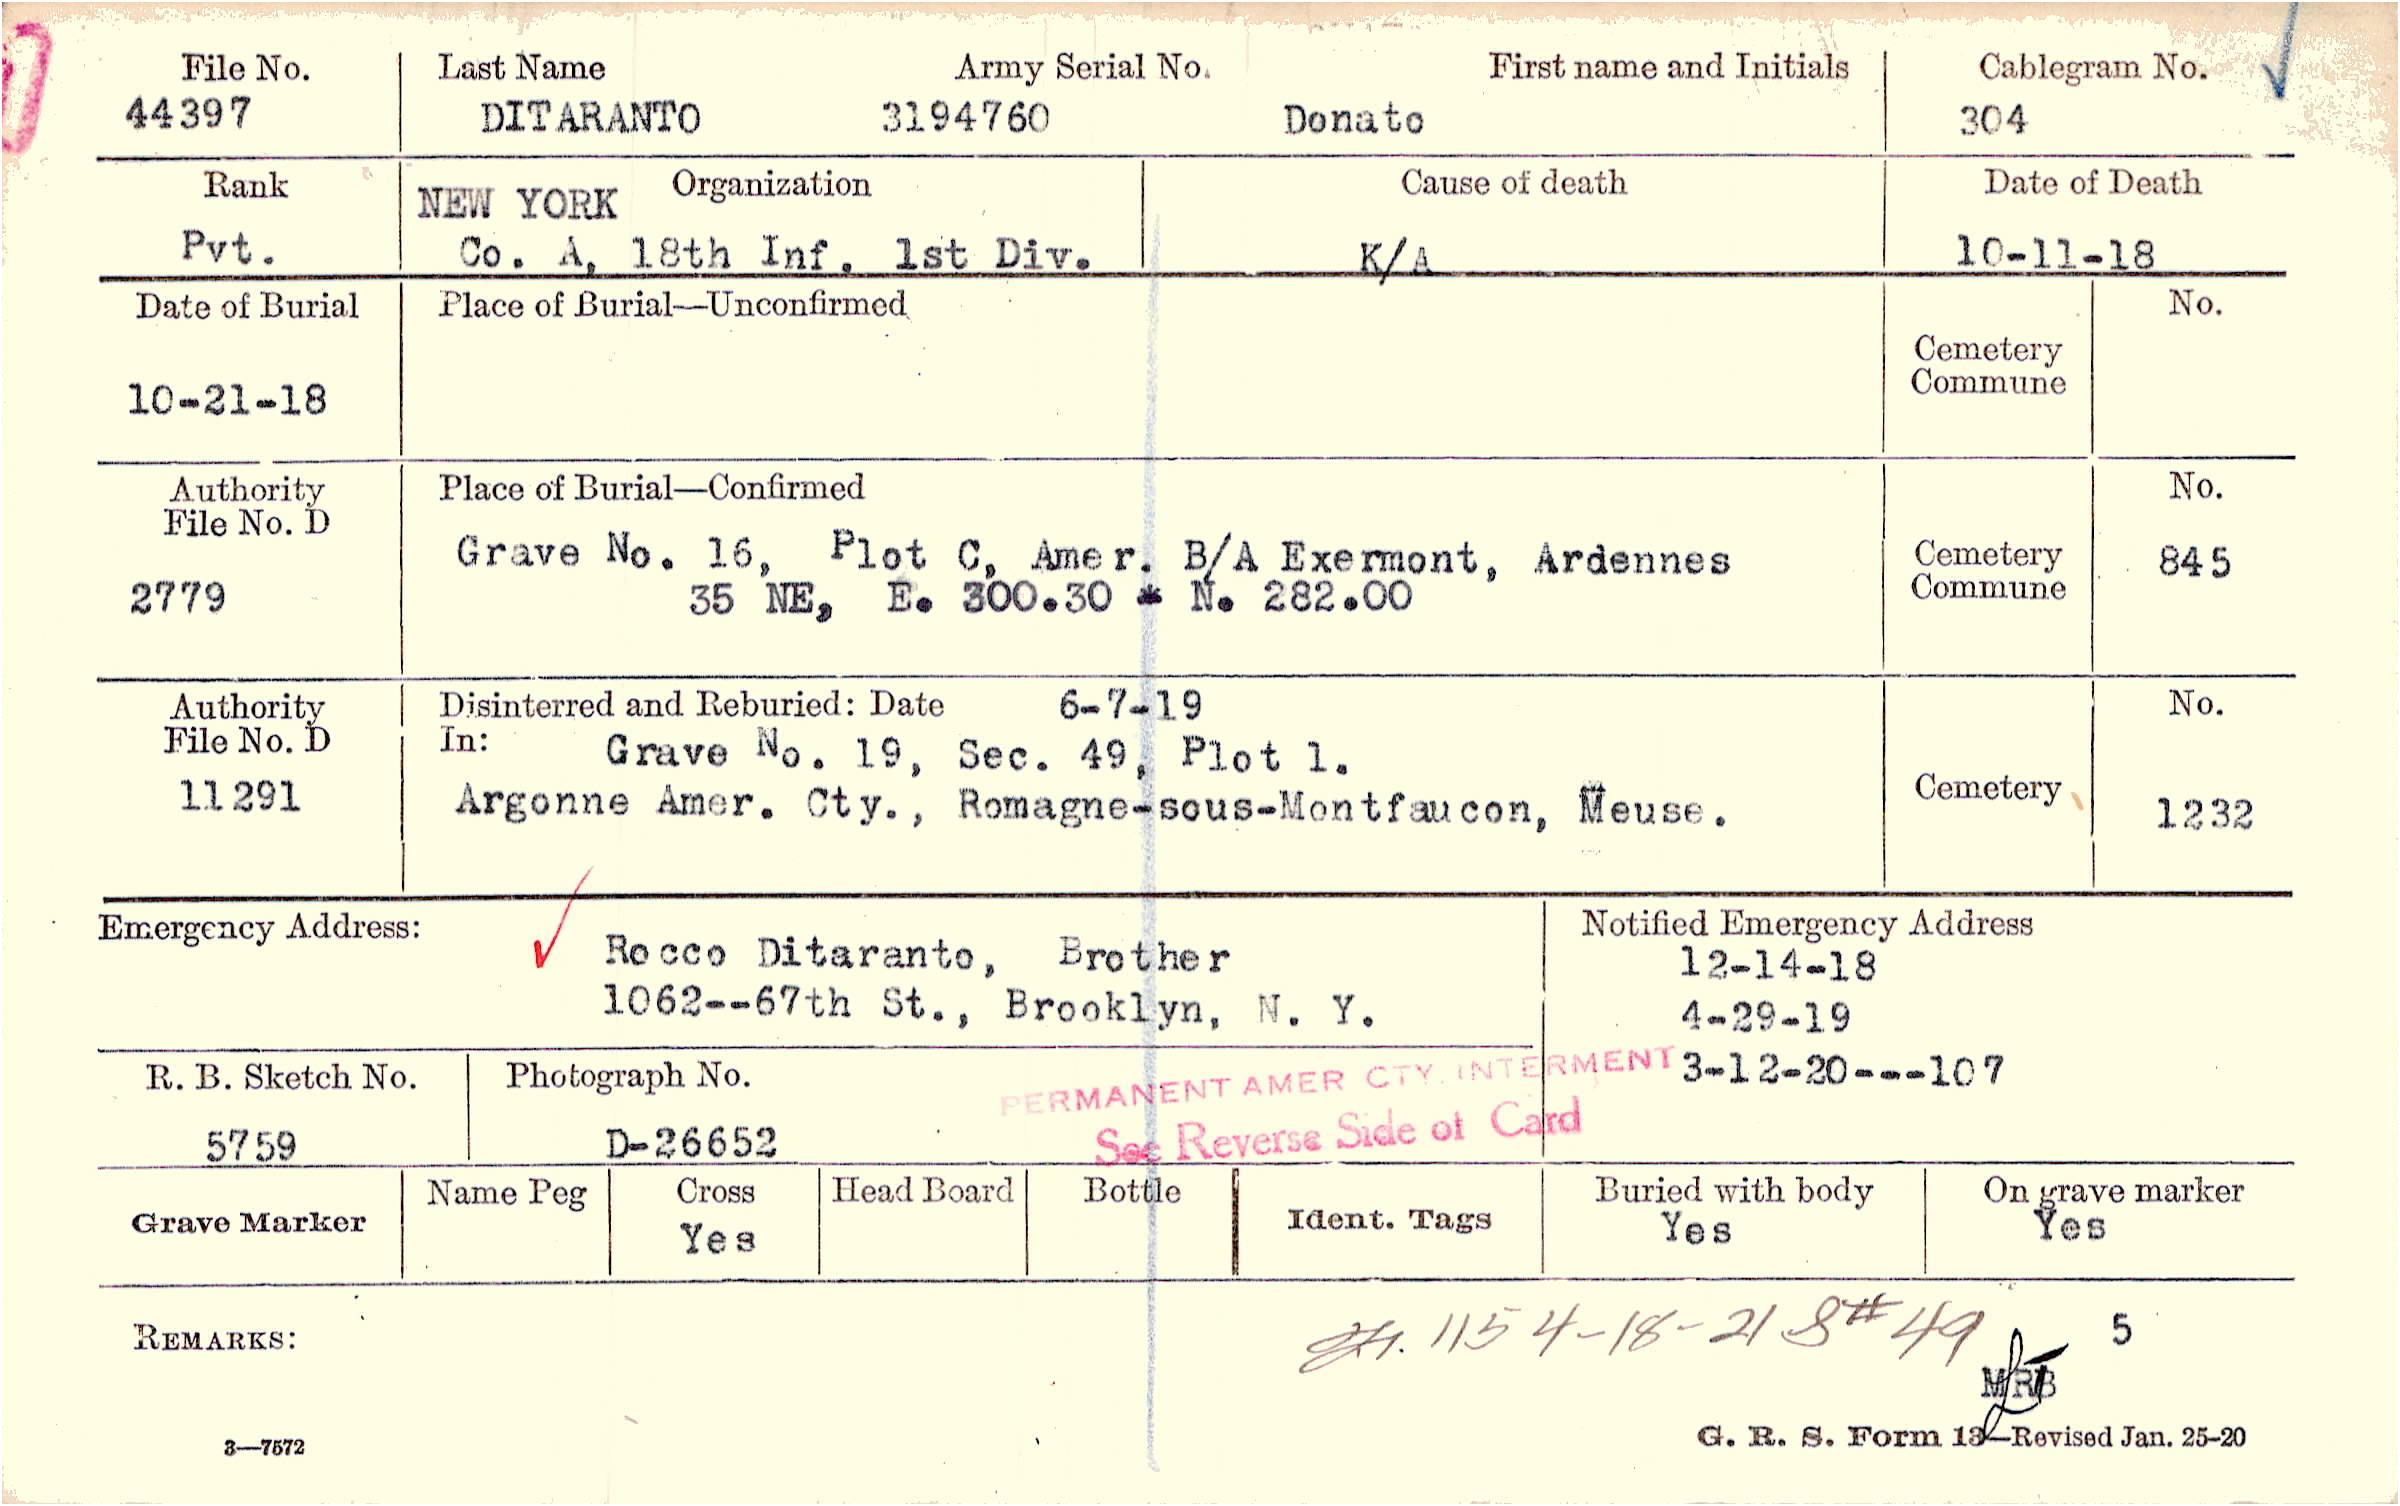 File No. Last Name Army Serial No. First name and Initials Cablegram No.
44397 DITARANTO 3194760 Donato 304
Rank NEW YORK Organization Cause of death Date of Death
Pvt. Co. A, 18th Inf. 1st Div. K/A 10-11-18
Date of Burial Place of Burial—Unconfirmed No.
Cemetery
Commune
10-21-18
Authority Place of Burial—Confirmed No.
File No. D
Grave No. 16, Plot C, Amer. B/A Exermont, Ardennes Cemetery 845
2779 35 NE, E. 300.30 * N. 282.00 Commune
Authority Disinterred and Reburied: Date 6-7-19 No.
File No. D In: Grave No. 19, Sec. 49, Plot 1.
11291 Argonne Amer. Cty., Romagne-sous-Montfaucon, Meuse. Cemetery 1232
Emergency Address: Notified Emergency Address
Rocco Ditaranto, Brother 12-14-18
1062--67th St., Brooklyn, N. Y. 4-29-19
R. B. Sketch No. Photograph No. PERMANENT AMER CTY. INTERMENT 3-12-20---107
5759 D-26652 See Reverse Side of Card
Grave Marker Name Peg Cross Head Board Bottle Ident. Tags Buried with body On grave marker
Yes Yes Yes
REMARKS: 115 4-18-21 S# 49 5
MRB
3—7572 G. R. S. Form 13—Revised Jan. 25-20